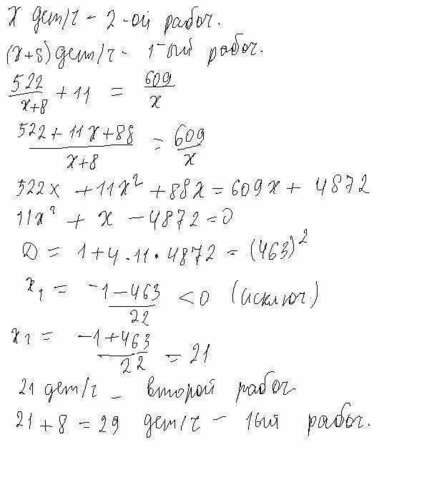 x дет/ч - 2-ой рабоч.
(x+8) дет/ч - 1-ый рабоч.
522/(x+8) + 11 = 609/x
(522+11x+88)/(x+8) = 609/x
522x + 11x² + 88x = 609x + 4872
11x² + x - 4872 = 0
D = 1+4·11·4872 = (463)²
x₁ = (-1-463)/22 < 0 (исключ)
x₂ = (-1+463)/22 = 21
21 дет/ч - второй рабоч
21+8 = 29 дет/ч - 1ый рабоч.